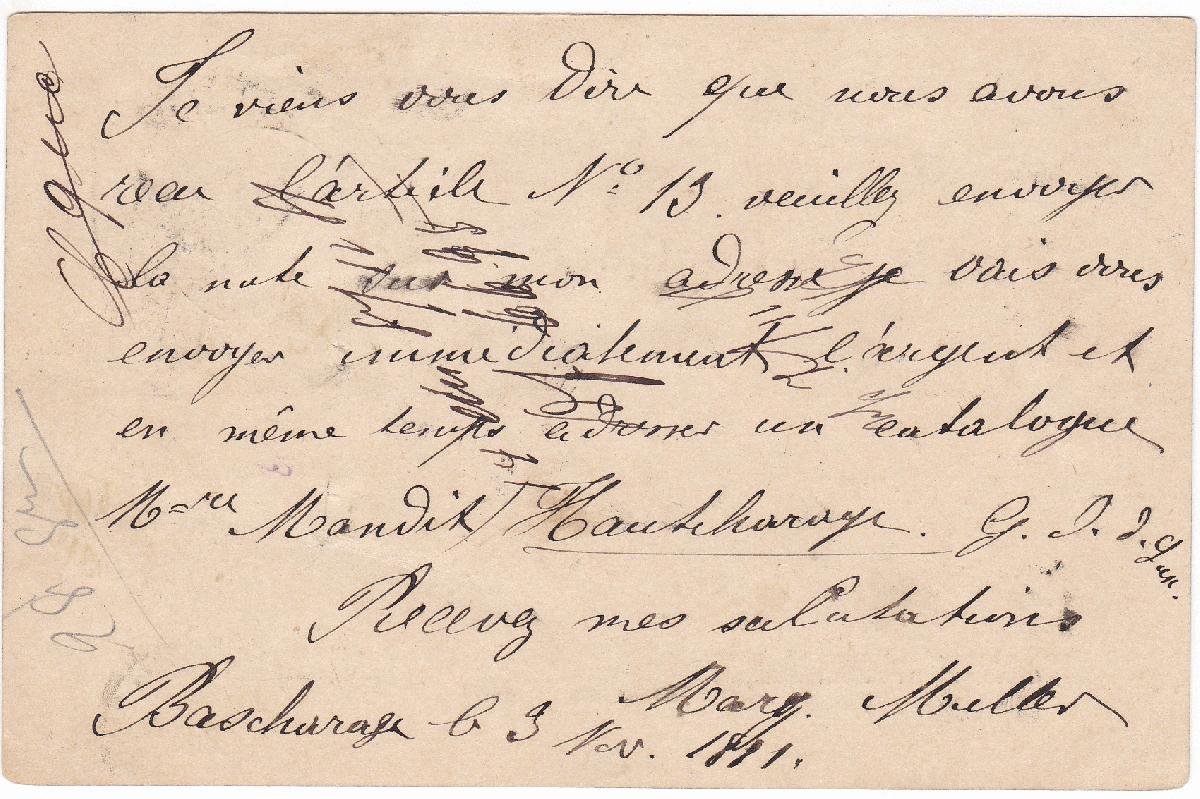 Je viens vous dire que nous avons
reçu l'article No 13. veuillez envoyer
la note sur mon adresse je vais vous
envoyer immediatement l'argent et
en même temps adresser un catalogue
Mandit Hautcharage. G. D. d.
Recevez mes salutations
Marg. Muller
Bascharage le 3 Nov.
28